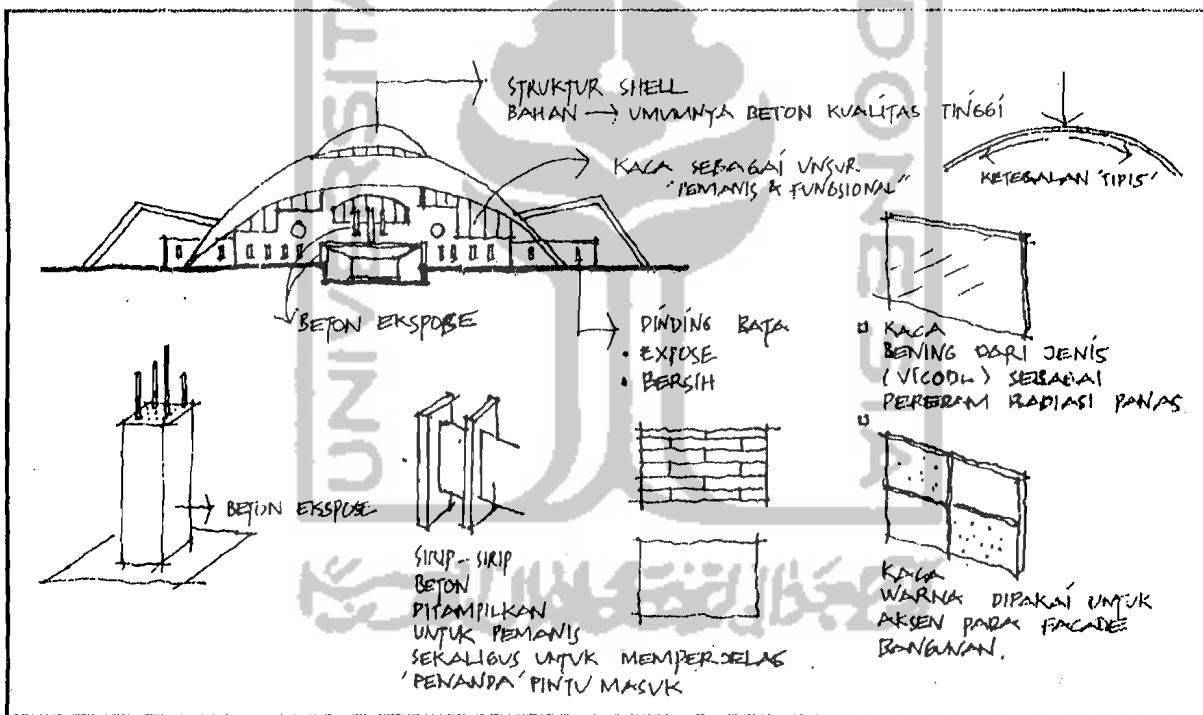 STRUKTUR SHELL
BAHAN → UMUMNYA BETON KUALITAS TINGGI
KACA SEBAGAI UNSUR
"PEMANIS & FUNGSIONAL"
KETEBALAN 'TIPIS'
BETON EKSPOSE
DINDING BATA
• EXPOSE
• BERSIH
KACA
BENING DARI JENIS
SEBAGAI
PEREDAM RADIASI PANAS
BETON EKSPOSE
SIRIP-SIRIP
BETON
DITAMPILKAN
UNTUK PEMANIS
SEKALIGUS UNTUK MEMPERJELAS
'PENANDA' PINTU MASUK
KACA
WARNA DIPAKAI UNTUK
AKSEN PADA FACADE
BANGUNAN.